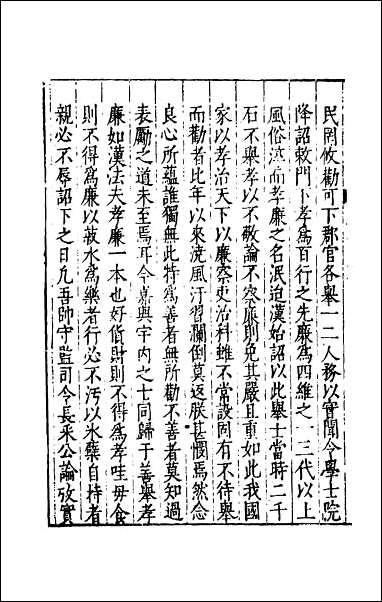 民罔攸勸可下郡官各舉一二人務以實聞令學士院
降詔敕門卜孝爲百行之先廉爲四維之一三代以上
風俗淳而孝廉之名泯迨漢始詔以此舉士當時二千
石不舉孝以不敬論不察廉則免其嚴且重如此我國
家以孝治天下以廉察吏治科雖不常設固有不待舉
而勸者比年以來澆風汙習瀾倒莫返朕甚愳焉然念
良心所蘊誰獨無此特爲善者無所勸不善者莫知過
表勵之道未至焉耳今嘉與宇内之士同歸于善舉孝
廉如漢法夫孝廉一本也好貨財則不得爲孝哇毋食
則不得爲廉以菽水爲樂者行必不汚以氷蘖自持者
親必不辱詔下之日凢吾帥守監司令長采公論攷實